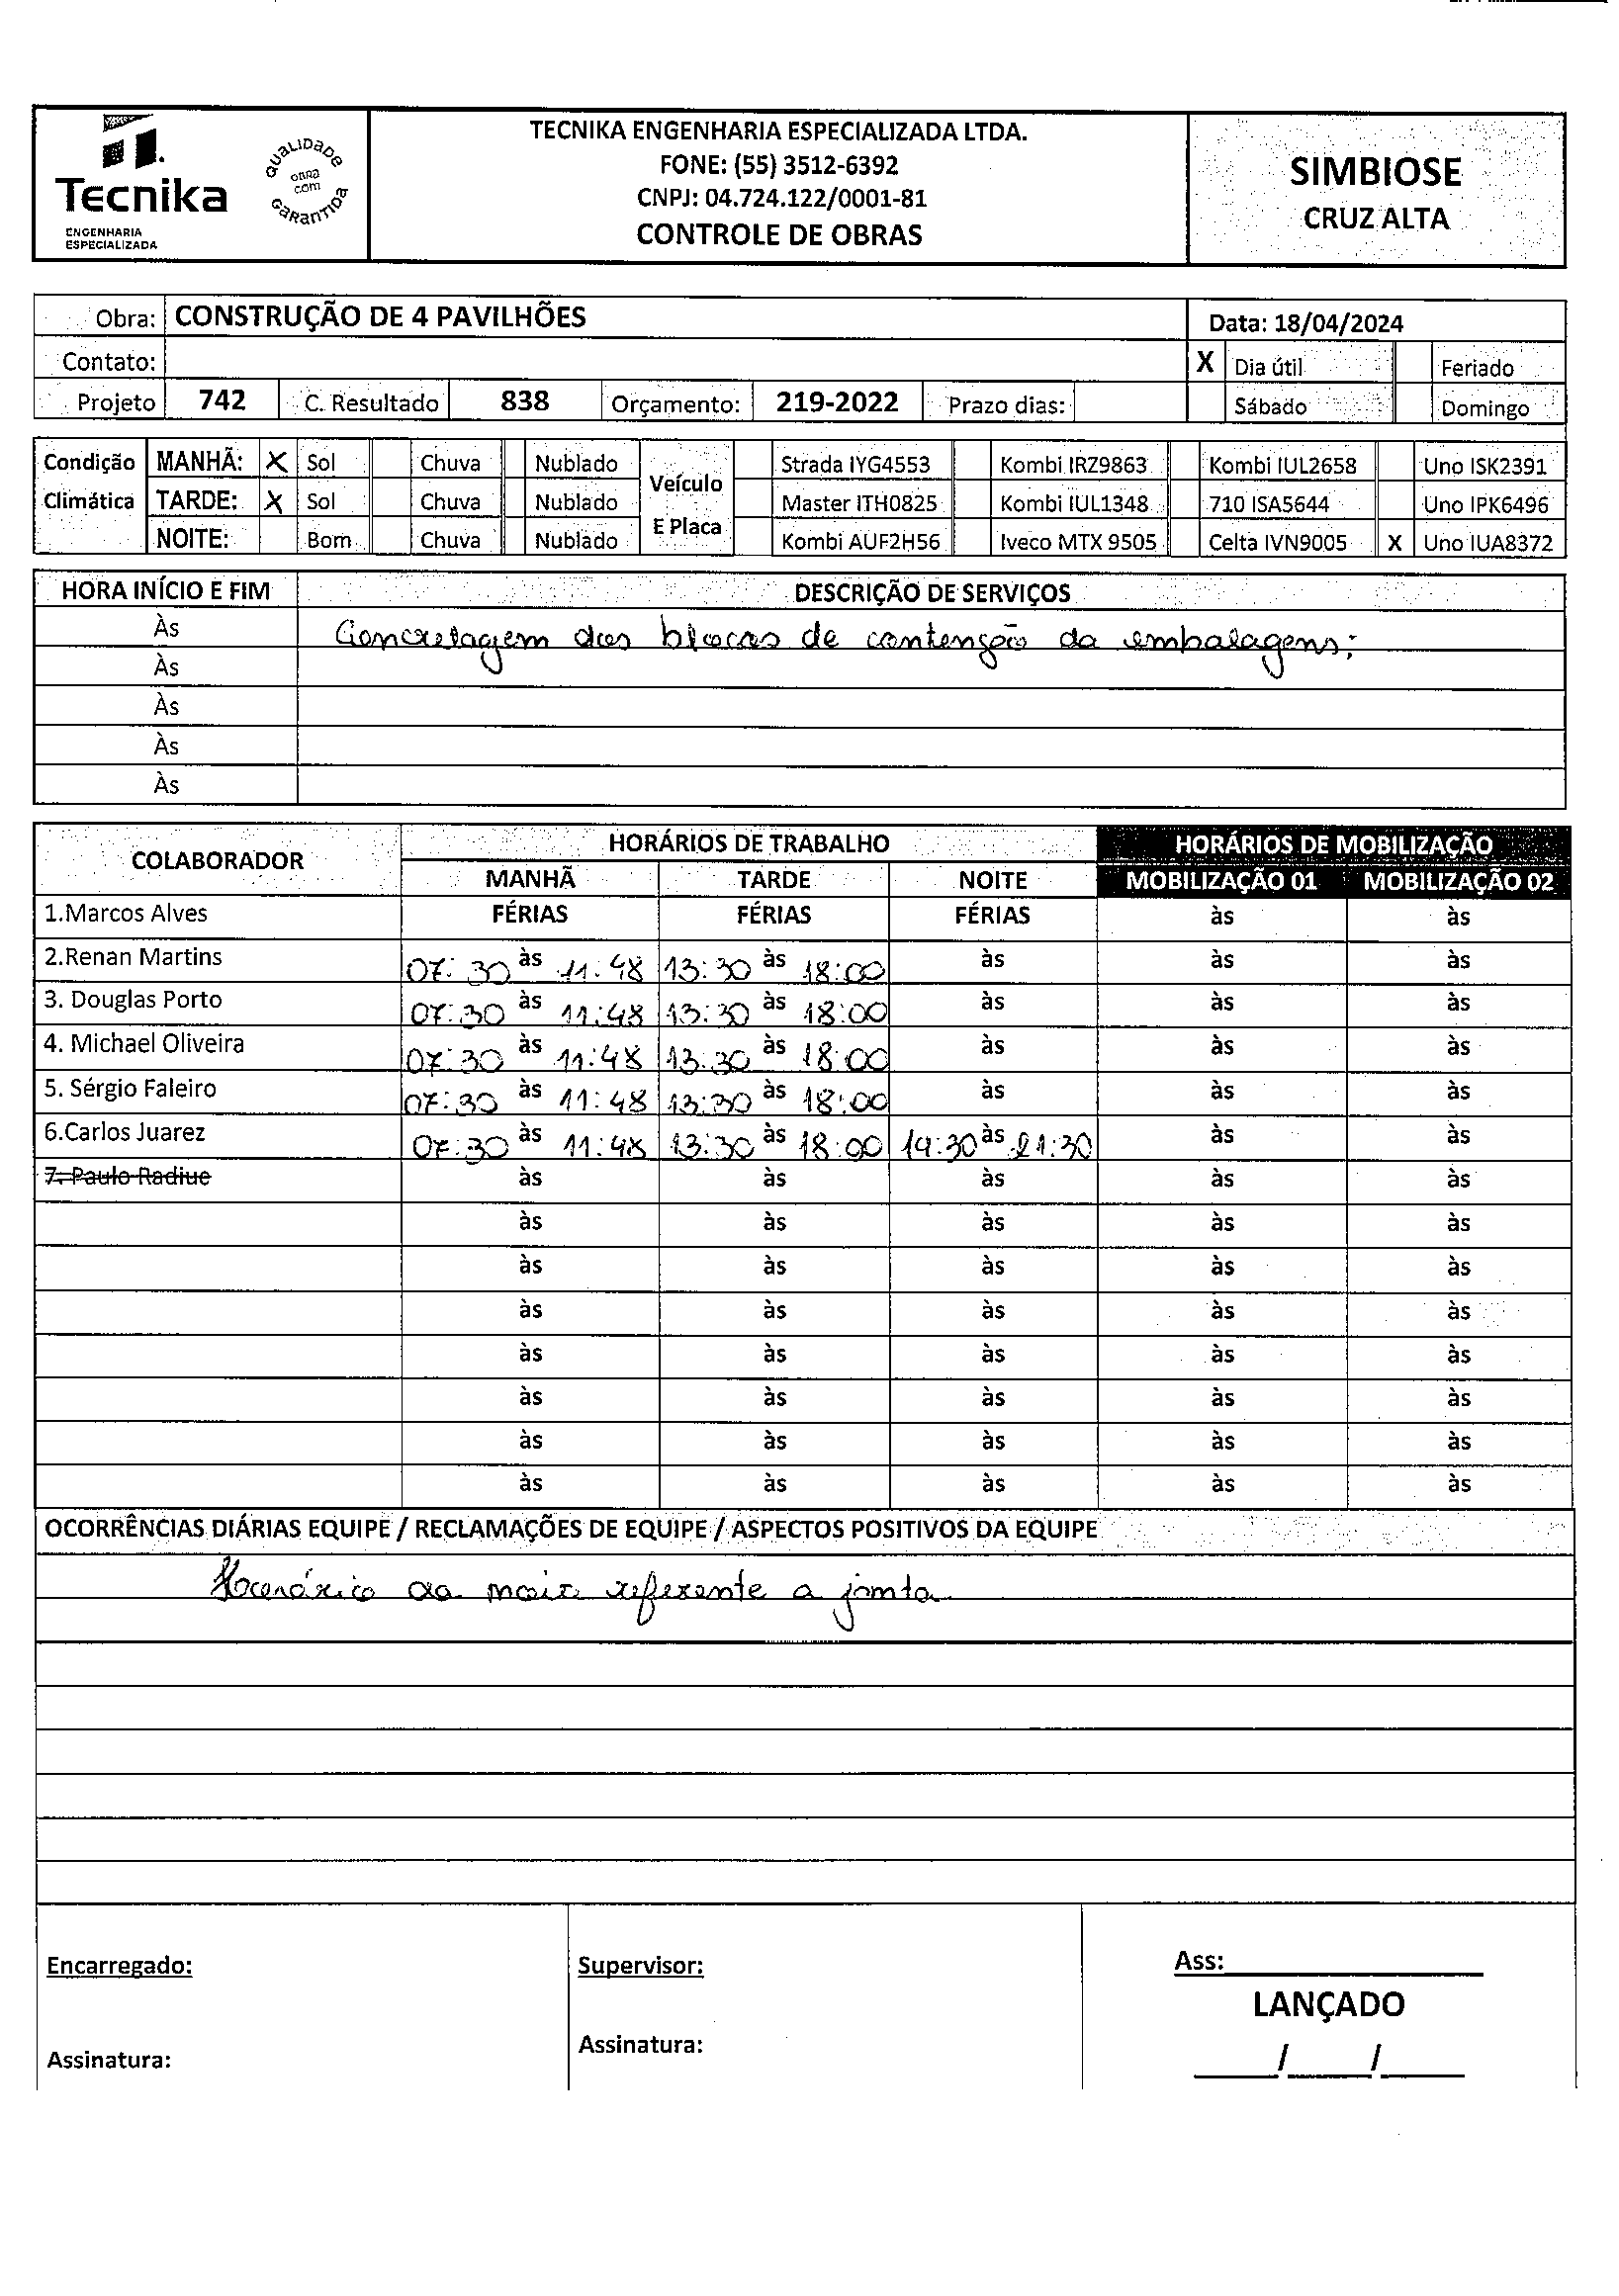 Tecnika
ENGENHARIA
ESPECIALIZADA
QUALIDADE
OBRA
COM
GARANTIDA
TECNIKA ENGENHARIA ESPECIALIZADA LTDA.
FONE: (55) 3512-6392
CNPJ: 04.724.122/0001-81
CONTROLE DE OBRAS
SIMBIOSE
CRUZ ALTA
Obra: CONSTRUÇÃO DE 4 PAVILHÕES Data: 18/04/2024
Contato: X Dia útil Feriado
Projeto 742 C. Resultado 838 Orçamento: 219-2022 Prazo dias: Sábado Domingo
Condição MANHÃ: X Sol Chuva Nublado Veículo Strada IYG4553 Kombi IRZ9863 Kombi IUL2658 Uno ISK2391
Climática TARDE: X Sol Chuva Nublado Master ITH0825 Kombi IUL1348 710 ISA5644 Uno IPK6496
NOITE: Bom Chuva Nublado E Placa Kombi AUF2H56 Iveco MTX 9505 Celta IVN9005 X Uno IUA8372
HORA INÍCIO E FIM DESCRIÇÃO DE SERVIÇOS
Às Concretagem dos blocos de contenção da embalagens;
Às
Às
Às
Às
COLABORADOR HORÁRIOS DE TRABALHO HORÁRIOS DE MOBILIZAÇÃO
MANHÃ TARDE NOITE MOBILIZAÇÃO 01 MOBILIZAÇÃO 02
1.Marcos Alves FÉRIAS FÉRIAS FÉRIAS às às
2.Renan Martins 07:30 às 11:48 13:30 às 18:00 às às às
3. Douglas Porto 07:30 às 11:48 13:30 às 18:00 às às às
4. Michael Oliveira 07:30 às 11:48 13:30 às 18:00 às às às
5. Sérgio Faleiro 07:30 às 11:48 13:30 às 18:00 às às às
6.Carlos Juarez 07:30 às 11:48 13:30 às 18:00 19:30 às 21:30 às às
7. Paulo Radiue às às às às às
às às às às às
às às às às às
às às às às às
às às às às às
às às às às às
às às às às às
às às às às às
OCORRÊNCIAS DIÁRIAS EQUIPE / RECLAMAÇÕES DE EQUIPE / ASPECTOS POSITIVOS DA EQUIPE
Horário da referente a janta
Encarregado: Supervisor: Ass:
LANÇADO
Assinatura: Assinatura: / /